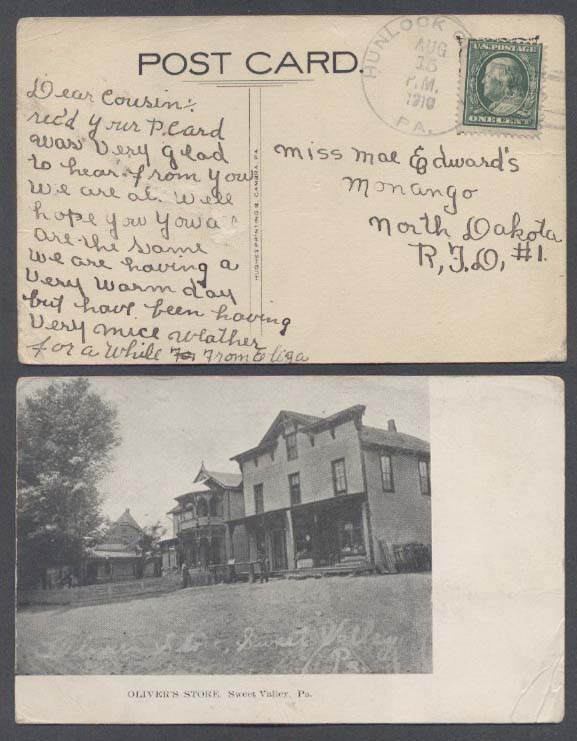 POST CARD.
HUNLOOK
AUG
13
P.M.
1910
PA.
U.S. POSTAGE
ONE CENT
Dear Cousin:
rec'd your P. Card
was very glad
to hear from you
We are al. Well
hope you you a
are the same
We are having a
very warm day
but have been having
Very mice Weather
for a While From Eliza
HUGHES PRINTING CAMBRA, PA.
Miss Mae Edward's
Monango
North Dakota
R, F, D, #1.
Store, Sweet Valley
Pa
OLIVER'S STORE, Sweet Valley, Pa.